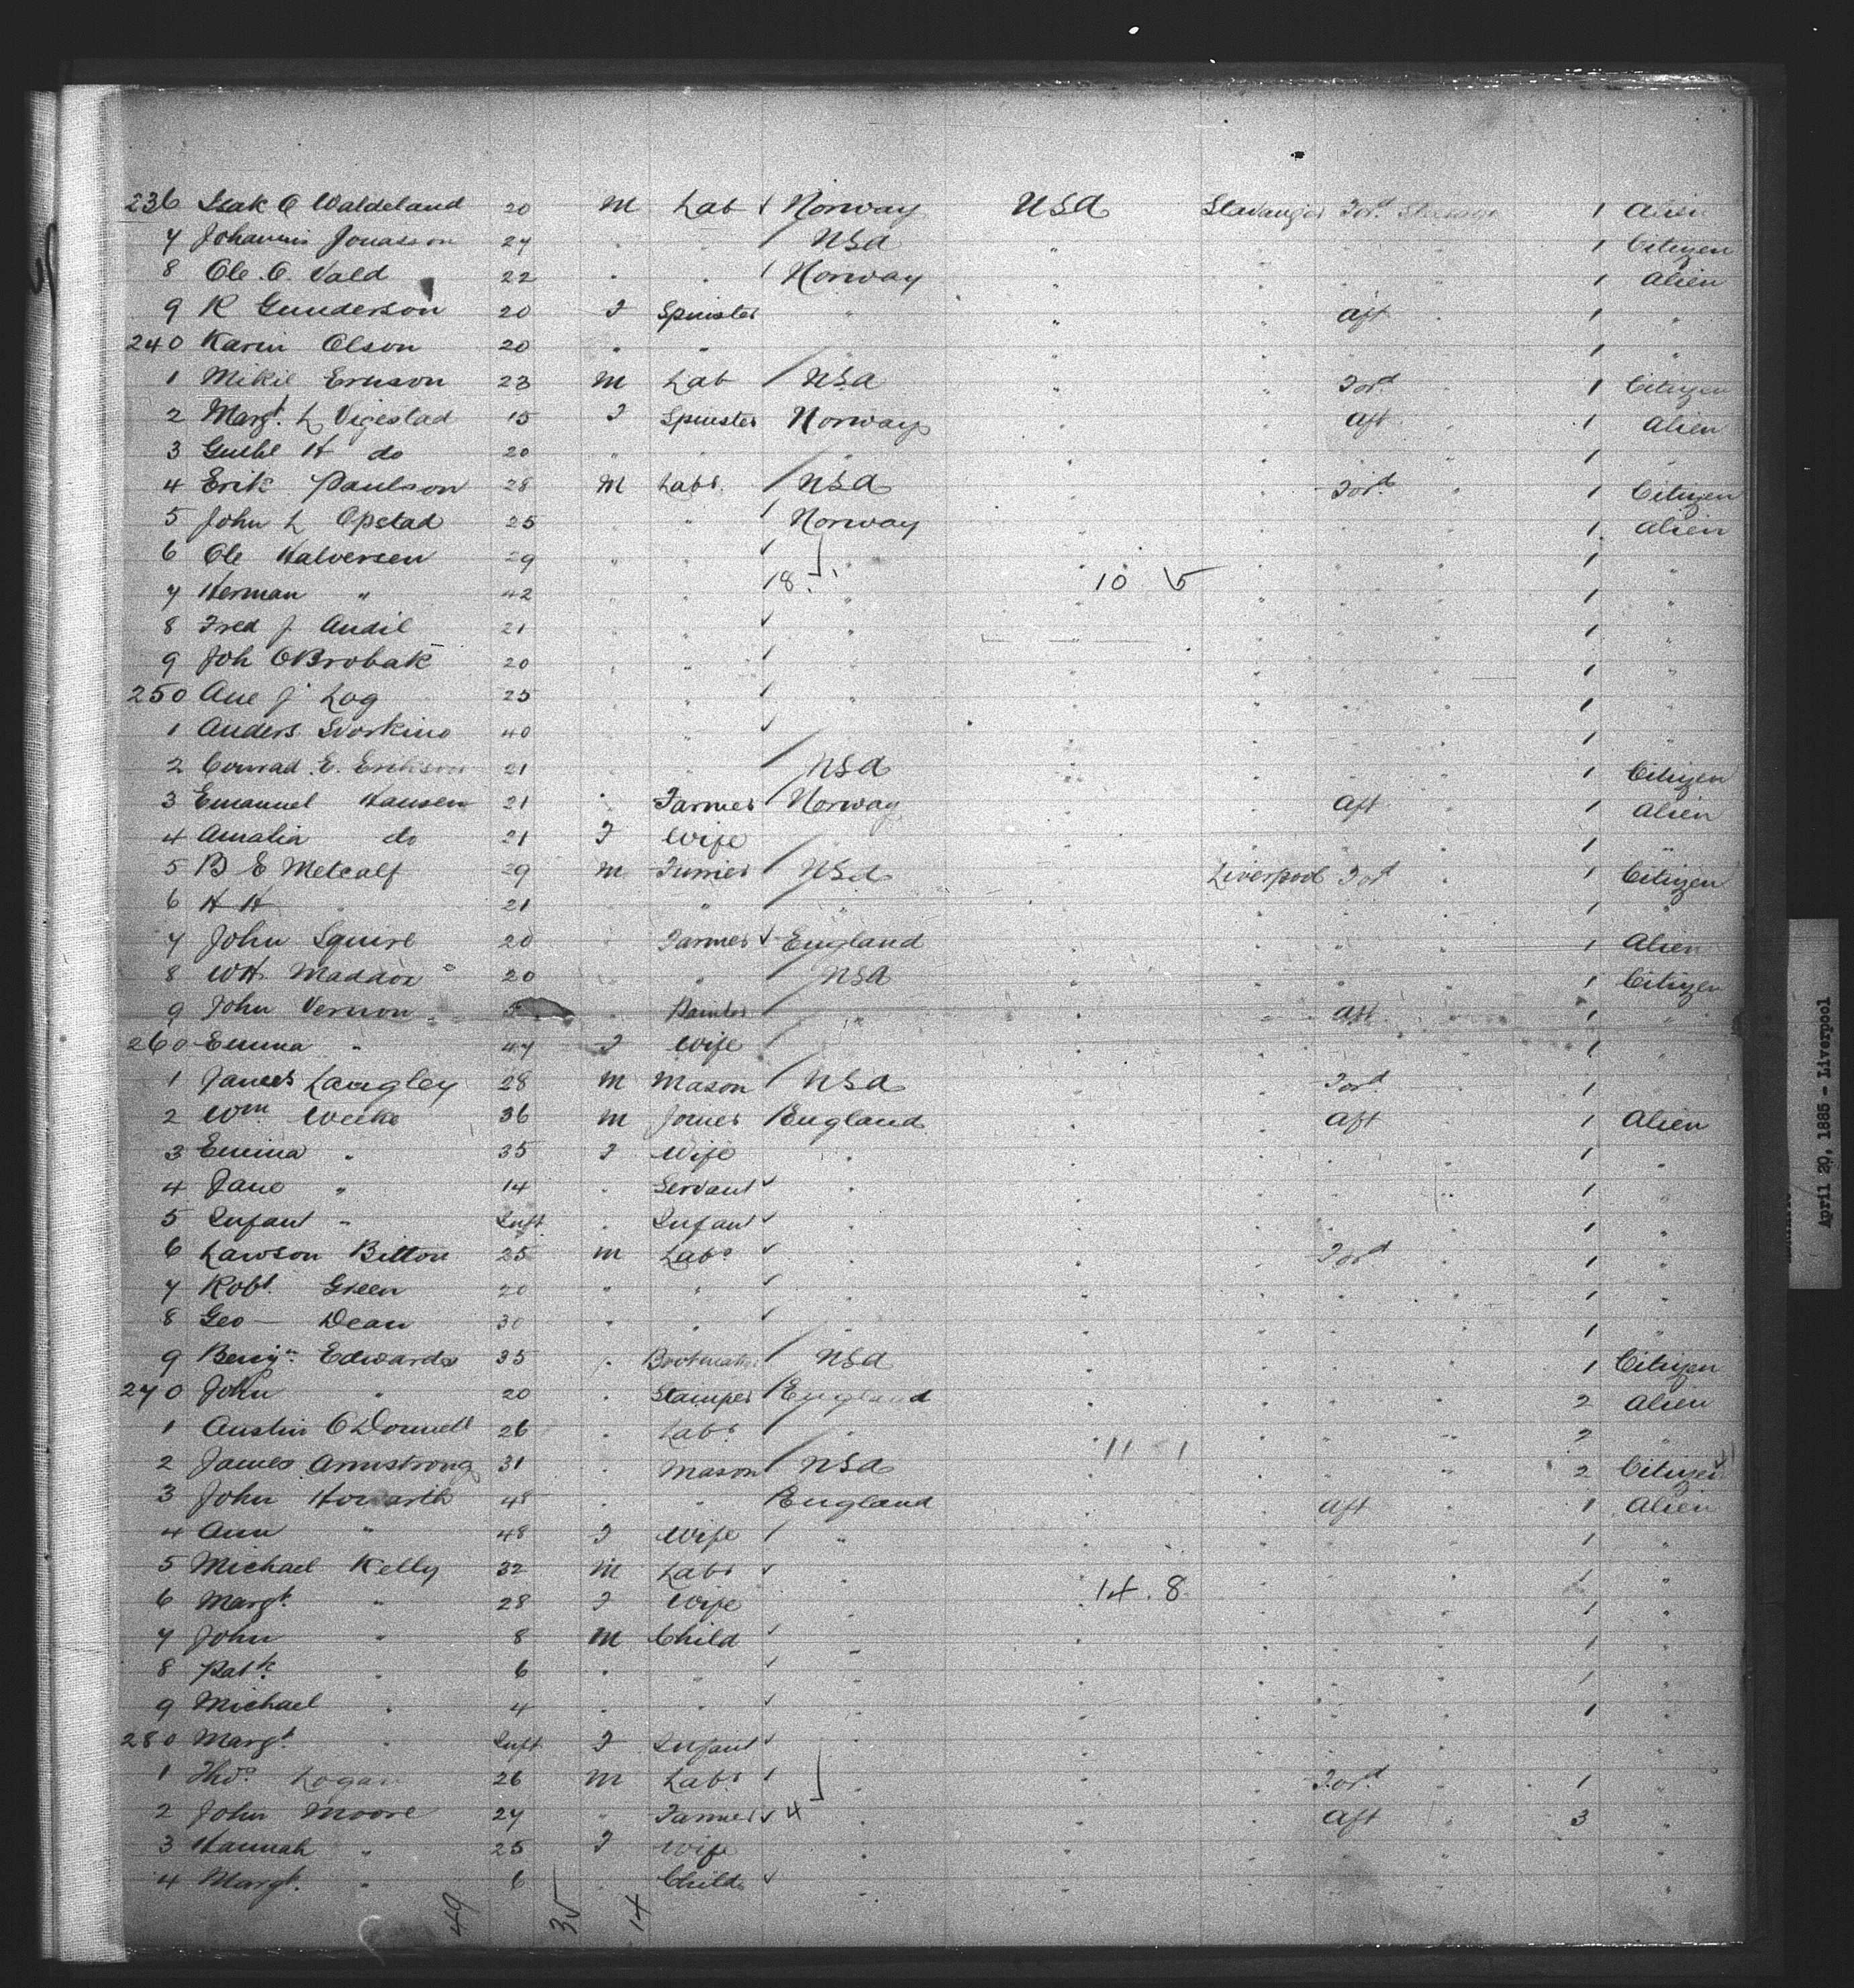 236 Isak O Waldeland 20 M Lab Norway USA Stavanger Ford Steerage 1 Alien
7 Johannis Jonasson 27 " " USA " " " 1 Citizen
8 Ole O. Vald 22 " " Norway " " " 1 Alien
9 R Gunderson 20 F Spinster " " " Aft " 1 "
240 Karin Olson 20 " " " " " 1 "
1 Mikil Erikson 23 M Lab USA " " Ford " 1 Citizen
2 Margt. L Vigestad 15 F Spinster Norway " " Aft " 1 Alien
3 Guthl H do 20 " " " " " 1 "
4 Erik Paulson 28 M Labr. USA " " Ford " 1 Citizen
5 John L Opstad 25 " Norway " " " 1 Alien
6 Ole Halversen 29 " " " " " 1 "
7 Herman " 42 " " 18 " 10 15 " " 1 "
8 Fred J Audil 21 " " " " " 1 "
9 Joh O Brobak 20 " " " " " 1 "
250 Ane J Log 25 " " " " " 1 "
1 Anders Storkino 40 " " " " " 1 "
2 Conrad E. Erikson 21 " USA " " " 1 Citizen
3 Emanuel Hansen 21 " Farmer Norway " " Aft " 1 Alien
4 Amalia do 21 F Wife " " " 1 "
5 B E Metcalf 29 M Furrier USA " Liverpool Ford " 1 Citizen
6 H H " 21 " " " " " 1 "
7 John Squire 20 " Farmer England " " " 1 Alien
8 WH. Maddox 20 " " USA " " " 1 Citizen
9 John Vernon " Painter " " " Aft " 1 "
260 Emma " 47 F Wife " " " 1 "
1 James Langley 28 M Mason USA " " Ford " 1
2 Wm Weeke 36 M Joiner England " " Aft " 1 Alien
3 Emma " 35 F Wife " " " " 1 "
4 Jane " 14 " Servant " " " " 1 "
5 Infant " Inft " Infant " " " " 1 "
6 Lawson Bitton 25 M Labr " " " Ford " 1 "
7 Robt. Green 20 " " " " " " 1 "
8 Geo Dean 30 " " " " " " 1 "
9 Benjn. Edwards 35 " USA " " " 1 Citizen
270 John " 20 " Stamper England " " " 2 Alien
1 Austin O Donnell 26 " Labr " 11 1 " " " 2 "
2 James Armstrong 31 " Mason USA " " " 2 Citizen
3 John Howarth 48 " " England " " Aft 1 Alien
4 Ann " 48 F Wife " " " " 1 "
5 Michael Kelly 32 M Labr " " " " 1 "
6 Margt. " 28 F Wife " 14 . 8 " " 1 "
7 John " 8 M Child " " " " 1 "
8 Patk. " 6 " " " " " " 1 "
9 Michael " 4 " " " " " " 1 "
280 Margt. " Inft F Infant " " " " "
1 Thos. Logan 26 M Labr. " " " Ford " 1 "
2 John Moore 27 " Farmer 4 " " " Aft " 3 "
3 Hannah " 25 F Wife " " " " "
4 Margt. " 6 " Child " " " " "
49 35 14
April 20, 1885 - Liverpool